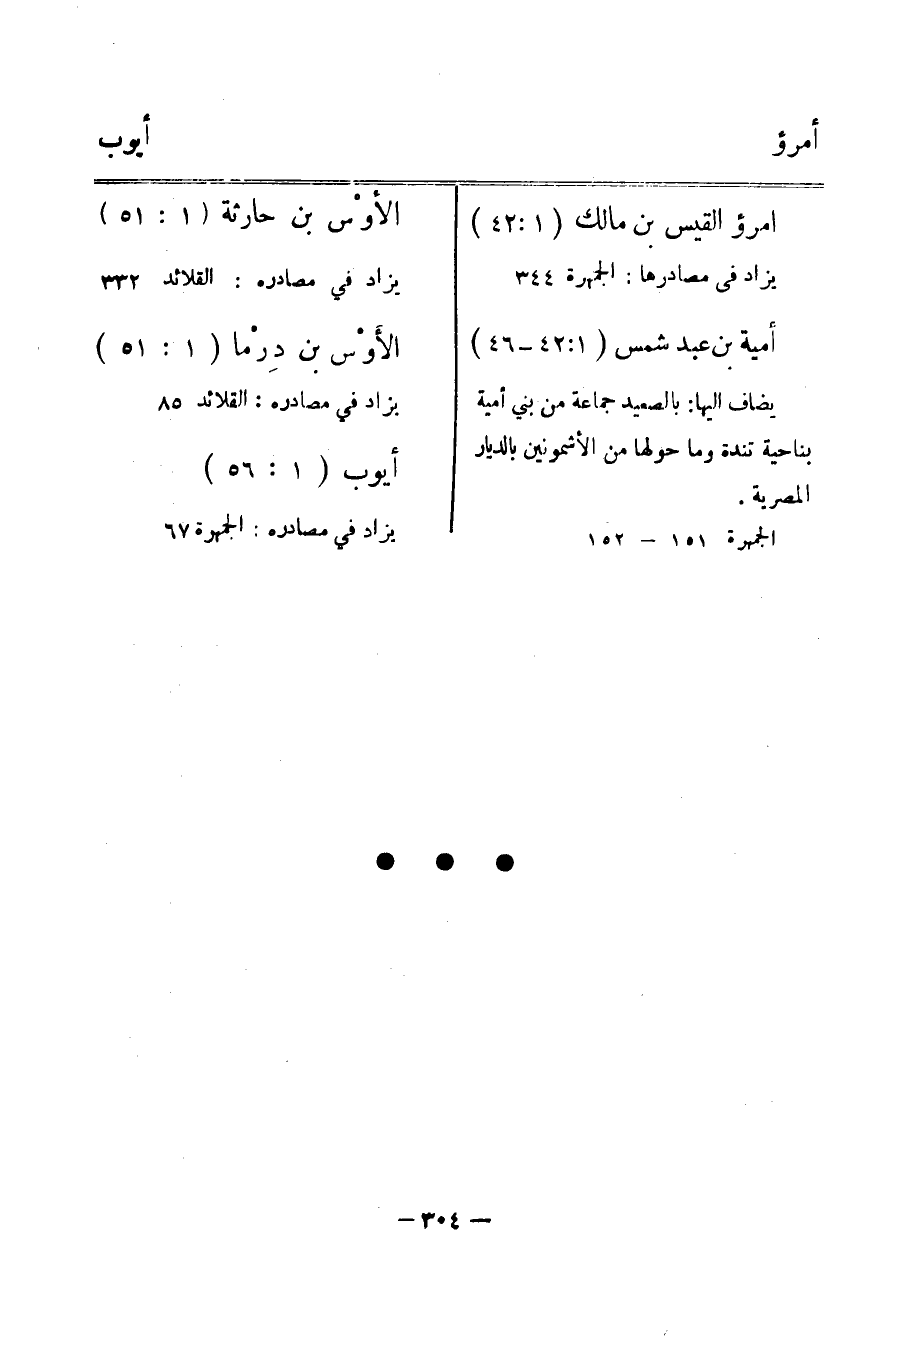 أمرؤ
أيوب
امرؤ القيس بن مالك ( ١ :٤٢ )
يزاد في مصادرها : الجمهرة ٣٤٤
أمية بن عبد شمس ( ٤٢:١ – ٤٦ )
يضاف اليها: بالصعيد جماعة من بني أمية
بناحية تندة وما حولها من الأشمونين بالديار
المصرية .
الجمهرة ١٥١ – ١٥٢
الأوْس بن حارثة ( ١ : ٥١ )
يزاد في مصادره : القلائد ٣٣٢
الأَوْس بن دِرْما ( ١ : ٥١ )
يزاد في مصادره : القلائد ٨٥
أيوب ( ١ : ٥٦ )
يزاد في مصادره : الجمهرة ٦٧
– ٣٠٤ –